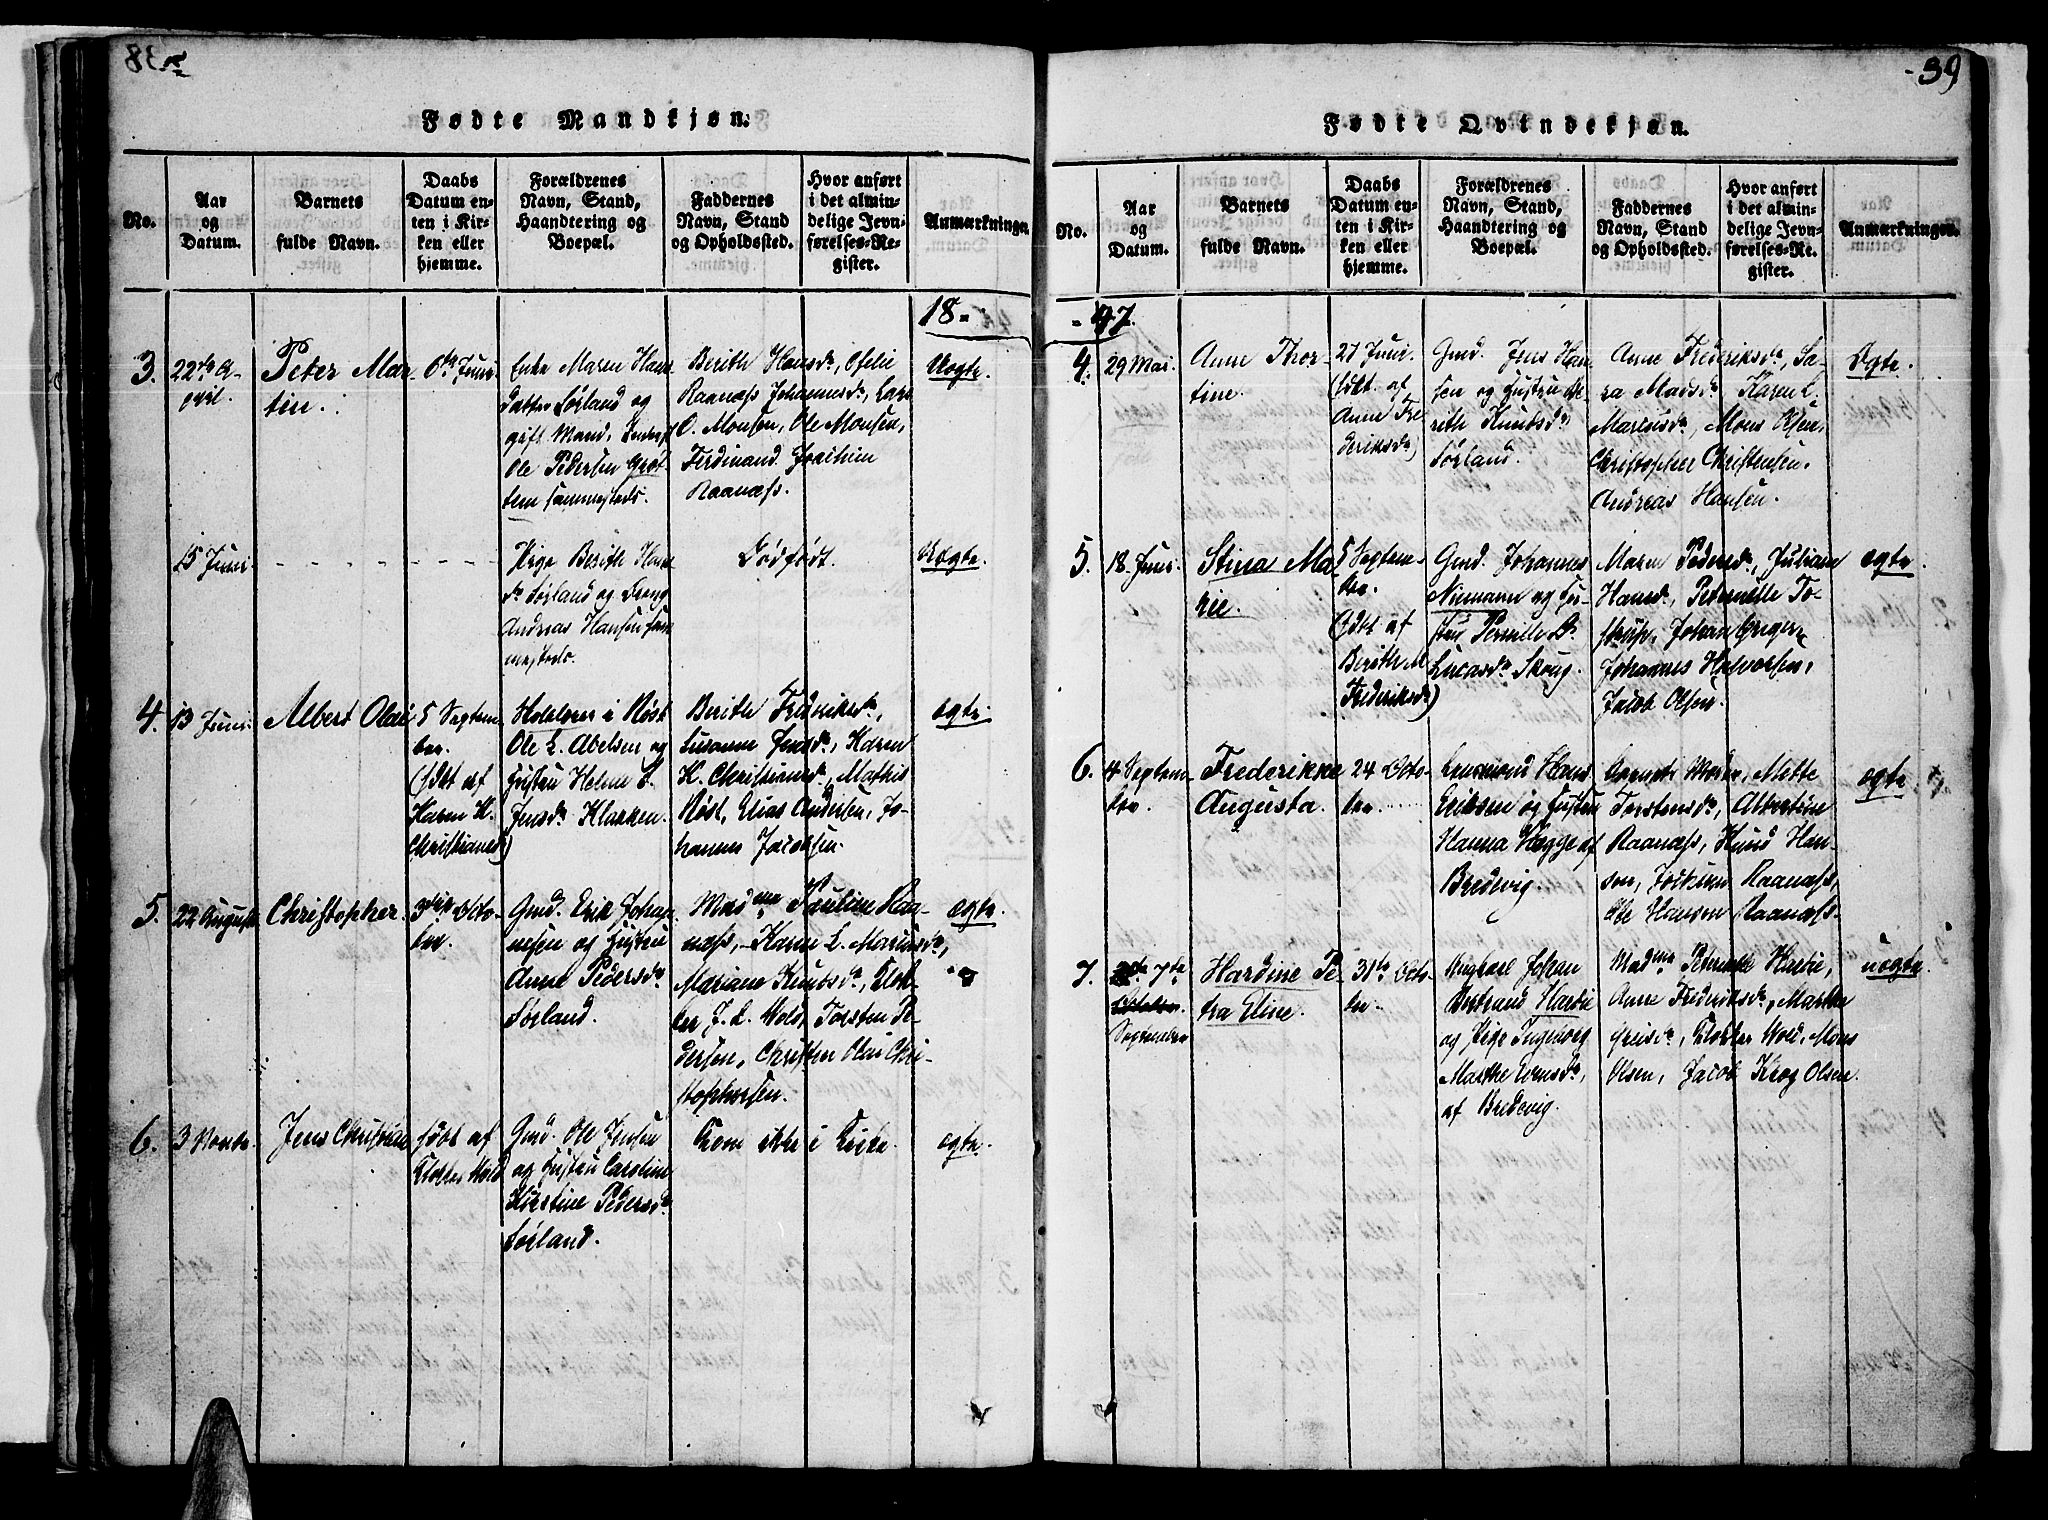 38
Fødte Mandkjøn.
No.
Aar
og
Datum.
Barnets
fulde Navn.
Daabs
Datum en-
ten i Kir-
ken eller
hjemme.
Forældrenes
Navn, Stand,
Haandtering og
Boepæl.
Faddernes
Navn, Stand
og Opholdssted.
Hvor anført
i det almin-
delige Jevn-
førelses-Re-
gister.
Anmærkninger.
18-
3.
22de A-
pril.
Peter Mar-
tin.
6te Juni
Enke Maren Hans
Datter Sørland og
gift Mand,
Ole Pedersen Grøt-
tem sammesteds.
Berith Hansdr, Ofelie
Raanæss Johannesdr, Lars
O. Monsen, Ole Monsen,
Ferdinand Joachim
Raanæss.
Uægte.
15 Juni.
Pige Berith Hans
dr Sørland og Dreng
Andreas Hansen sam
mesteds.
Dødfødt.
Uægte.
4.
13 Juni
Albert Olai
5 Septem
ber.
(døbt af
Karen K.
Christiansdr)
i Røst
Ole L. Abelsen og
Hustru Helene E.
Jensdr Klakken.
Berith Fredriksdr,
Susanne Jensdr, Karen
K. Christiansdr, Mathis
Røst, Elias Andersen, Jo-
hannes Jacobsen.
ægte.
5.
22 August
Christopher.
3die Octo-
ber.
Gmd. Erik Johan-
nesen og Hustru
Anne Pedersdr
Sørland.
Madme Pauline Raa-
næss, Karen L. Mariusdr,
Mariane Knudsdr, Klok-
ker J. L. Wold, Torsten Pe-
dersen, Christen Olai Chri-
stophersen.
ægte.
6.
3 Novbr.
Jens Christian
døbt af
Klokker Wold
Gmd. Ole Jensen
og Hustru Caroline
Kirstine Pedersdr
Sørland.
Kom ikke i Kirke.
ægte.
39
Fødte Qvindekjøn.
No.
Aar
og
Datum.
Barnets
fulde Navn.
Daabs
Datum en-
ten i Kir-
ken eller
hjemme.
Forældrenes
Navn, Stand,
Haandtering og
Boepæl.
Faddernes
Navn, Stand
og Opholdssted.
Hvor anført
i det almin-
delige Jevn-
førelses-Re-
gister.
Anmærkninger.
-47.
4.
29 Mai.
Anne Thor-
tine.
27 Juni.
(døbt af
Anne Fre
deriksdr)
Gmd. Jens Han-
sen og Hustru Be-
reth Knudsdr
Sørland.
Anne Frederiksdr, Sa-
ra Madsdr, Karen L.
Mariusdr, Mons Olsen,
Christopher Christensen,
Andreas Hansen.
Ægte.
5.
18 Juni.
Stina Ma-
rie.
5 Septem-
ber.
(døbt af
Berith M
Frederiksdr)
Gmd. Johannes
Niemann og Hu-
stru Pernille B.
Lucasdr Skoug.
Maren Pedersdr, Juliane
Hansdr, Petrnelle To-
strup, Johan Greger,
Johannes Halvorsen,
Jacob Olsen.
ægte.
6.
4 Septem
ber.
Frederikke
Augusta.
24 Octo-
ber.
Hans
Eriksen og Hustru
Hanna Hegge af
Bredevig.
Moder, Mette
Torstensdr, Albertine
Raanæss, Knud Han-
sen, Joakim Raanæss,
Ole Hansen Raanæss
ægte
7.
7de
September
Hardine Pe-
tra Eline.
31te Octo-
ber.
Ungkarl Johan
Bertrand Hartvig
og Pige Ingeborg
Marthe Evensdr,
af Bredevig.
Madme Petrnelle Hartvig,
Anne Frederiksdr, Marthe
Greisdr, Klokker Wold, Mons
Olsen, Jacob Krog Olsen.
uægte.